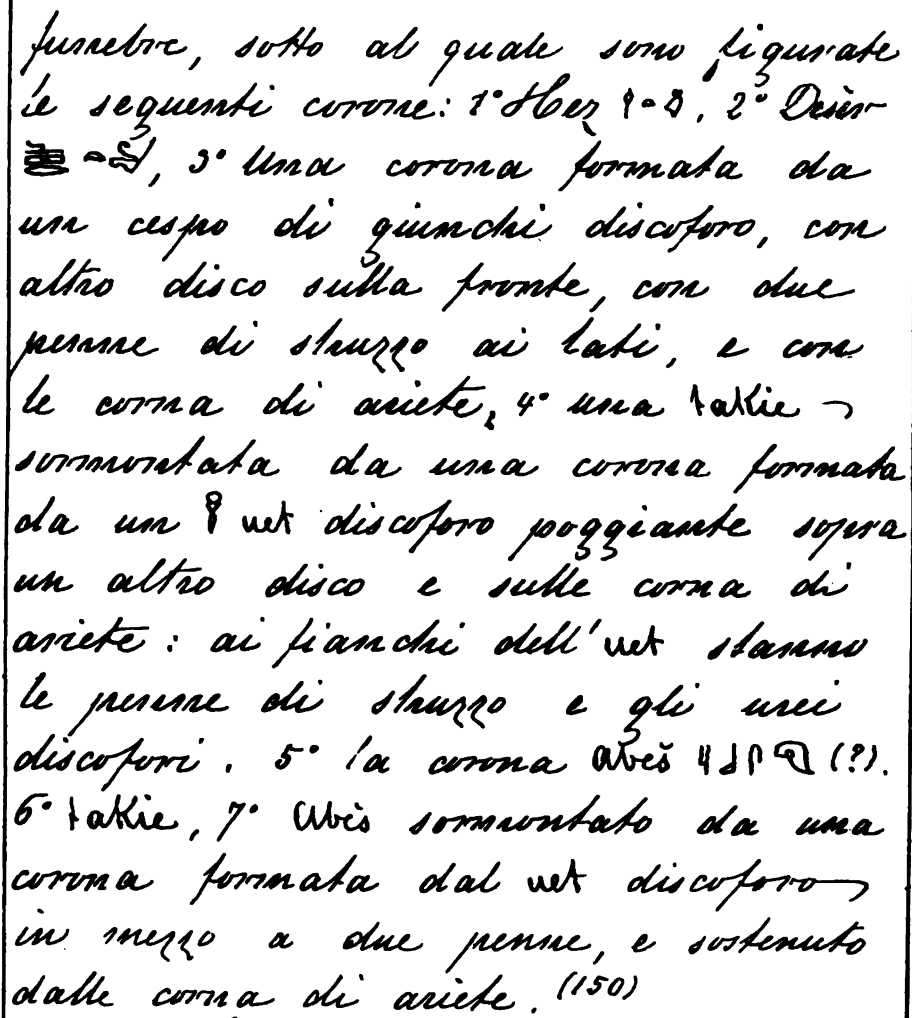 funebre, sotto al quale sono figurate
le seguenti corone: 1° Hez, 2°
3° Una corona formata da
un cespo di giunchi discoforo, con
altro disco sulla fronte, con due
penne di struzzo ai lati, e con
le corna di ariete, 4° una takie
sormontata da una corona formata
da un net discoforo poggiante sopra
un altro disco e sulle corna di
ariete: ai fianchi dell'net stanno
le penne di struzzo e gli urei
discofori. 5° la corona (?).
6° takie, 7° sormontato da una
corona formata dal net discoforo
in mezzo a due penne, e sostenuto
dalle corna di ariete. (150)